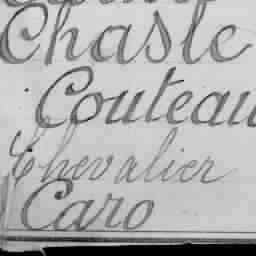 Chasle
Couteau
Chevalier
Caro